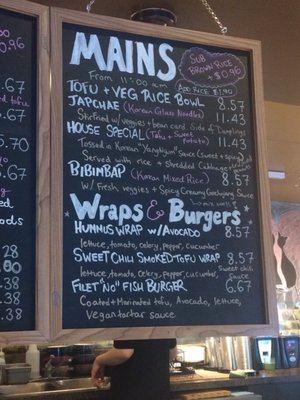 MAINS
From 11:00 am
SUB
BROWN RICE
+ $0.96
ADD RICE $1.90
TOFU + VEG RICE BOWL 8.57
JAPCHAE (Korean Glass Noodles) 11.43
Stirfried w/ veggies + bean curd. Side of Dumplings
HOUSE SPECIAL (Tofu + Sweet potato) 11.43
Tossed in Korean "YangNyum" Sauce (sweet + spicy)
Served with rice + shredded Cabbage
BIBIMBAP (Korean Mixed Rice) 8.57
w/ Fresh veggies + Spicy Creamy Gochujang Sauce
Wraps & Burgers
HUMMUS WRAP w/AVOCADO 8.57
lettuce, tomato, celery, pepper, cucumber
SWEET CHILI SMOKED TOFU WRAP 8.57
lettuce, tomato, celery, pepper, cucumber, Sweet chili Sauce
FILET "NO" FISH BURGER 6.67
Coated + Marinated tofu, Avocado, lettuce,
Vegan tartar sauce
0.96
5.67
tofu
5.70
5.67
ods
28
00
.38
.38
.38